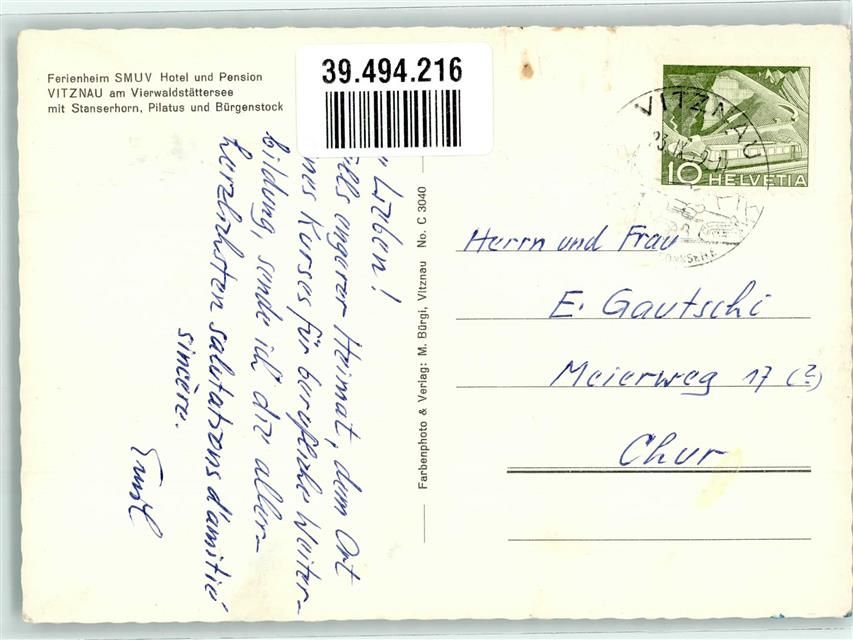 Ferienheim SMUV Hotel und Pension
VITZNAU am Vierwaldstättersee
mit Stanserhorn, Pilatus und Bürgenstock
39.494.216
Lieben!
engerer Heimat, dem Ort
nes Kurses für berufliche Weiter-
bildung, sende ich dir aller-
herzlichsten salutations d'amitié
sincère.
Farbenphoto & Verlag: M. Bürgi, Vitznau No. C 3040
VITZNAU
10 HELVETIA
Herrn und Frau
E. Gautschi
Meierweg 17 (?)
Chur